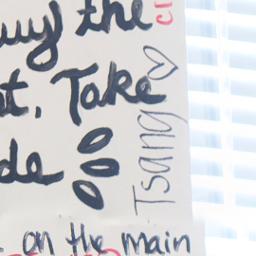 the
t. Take
de
Tsang ♡
on the main